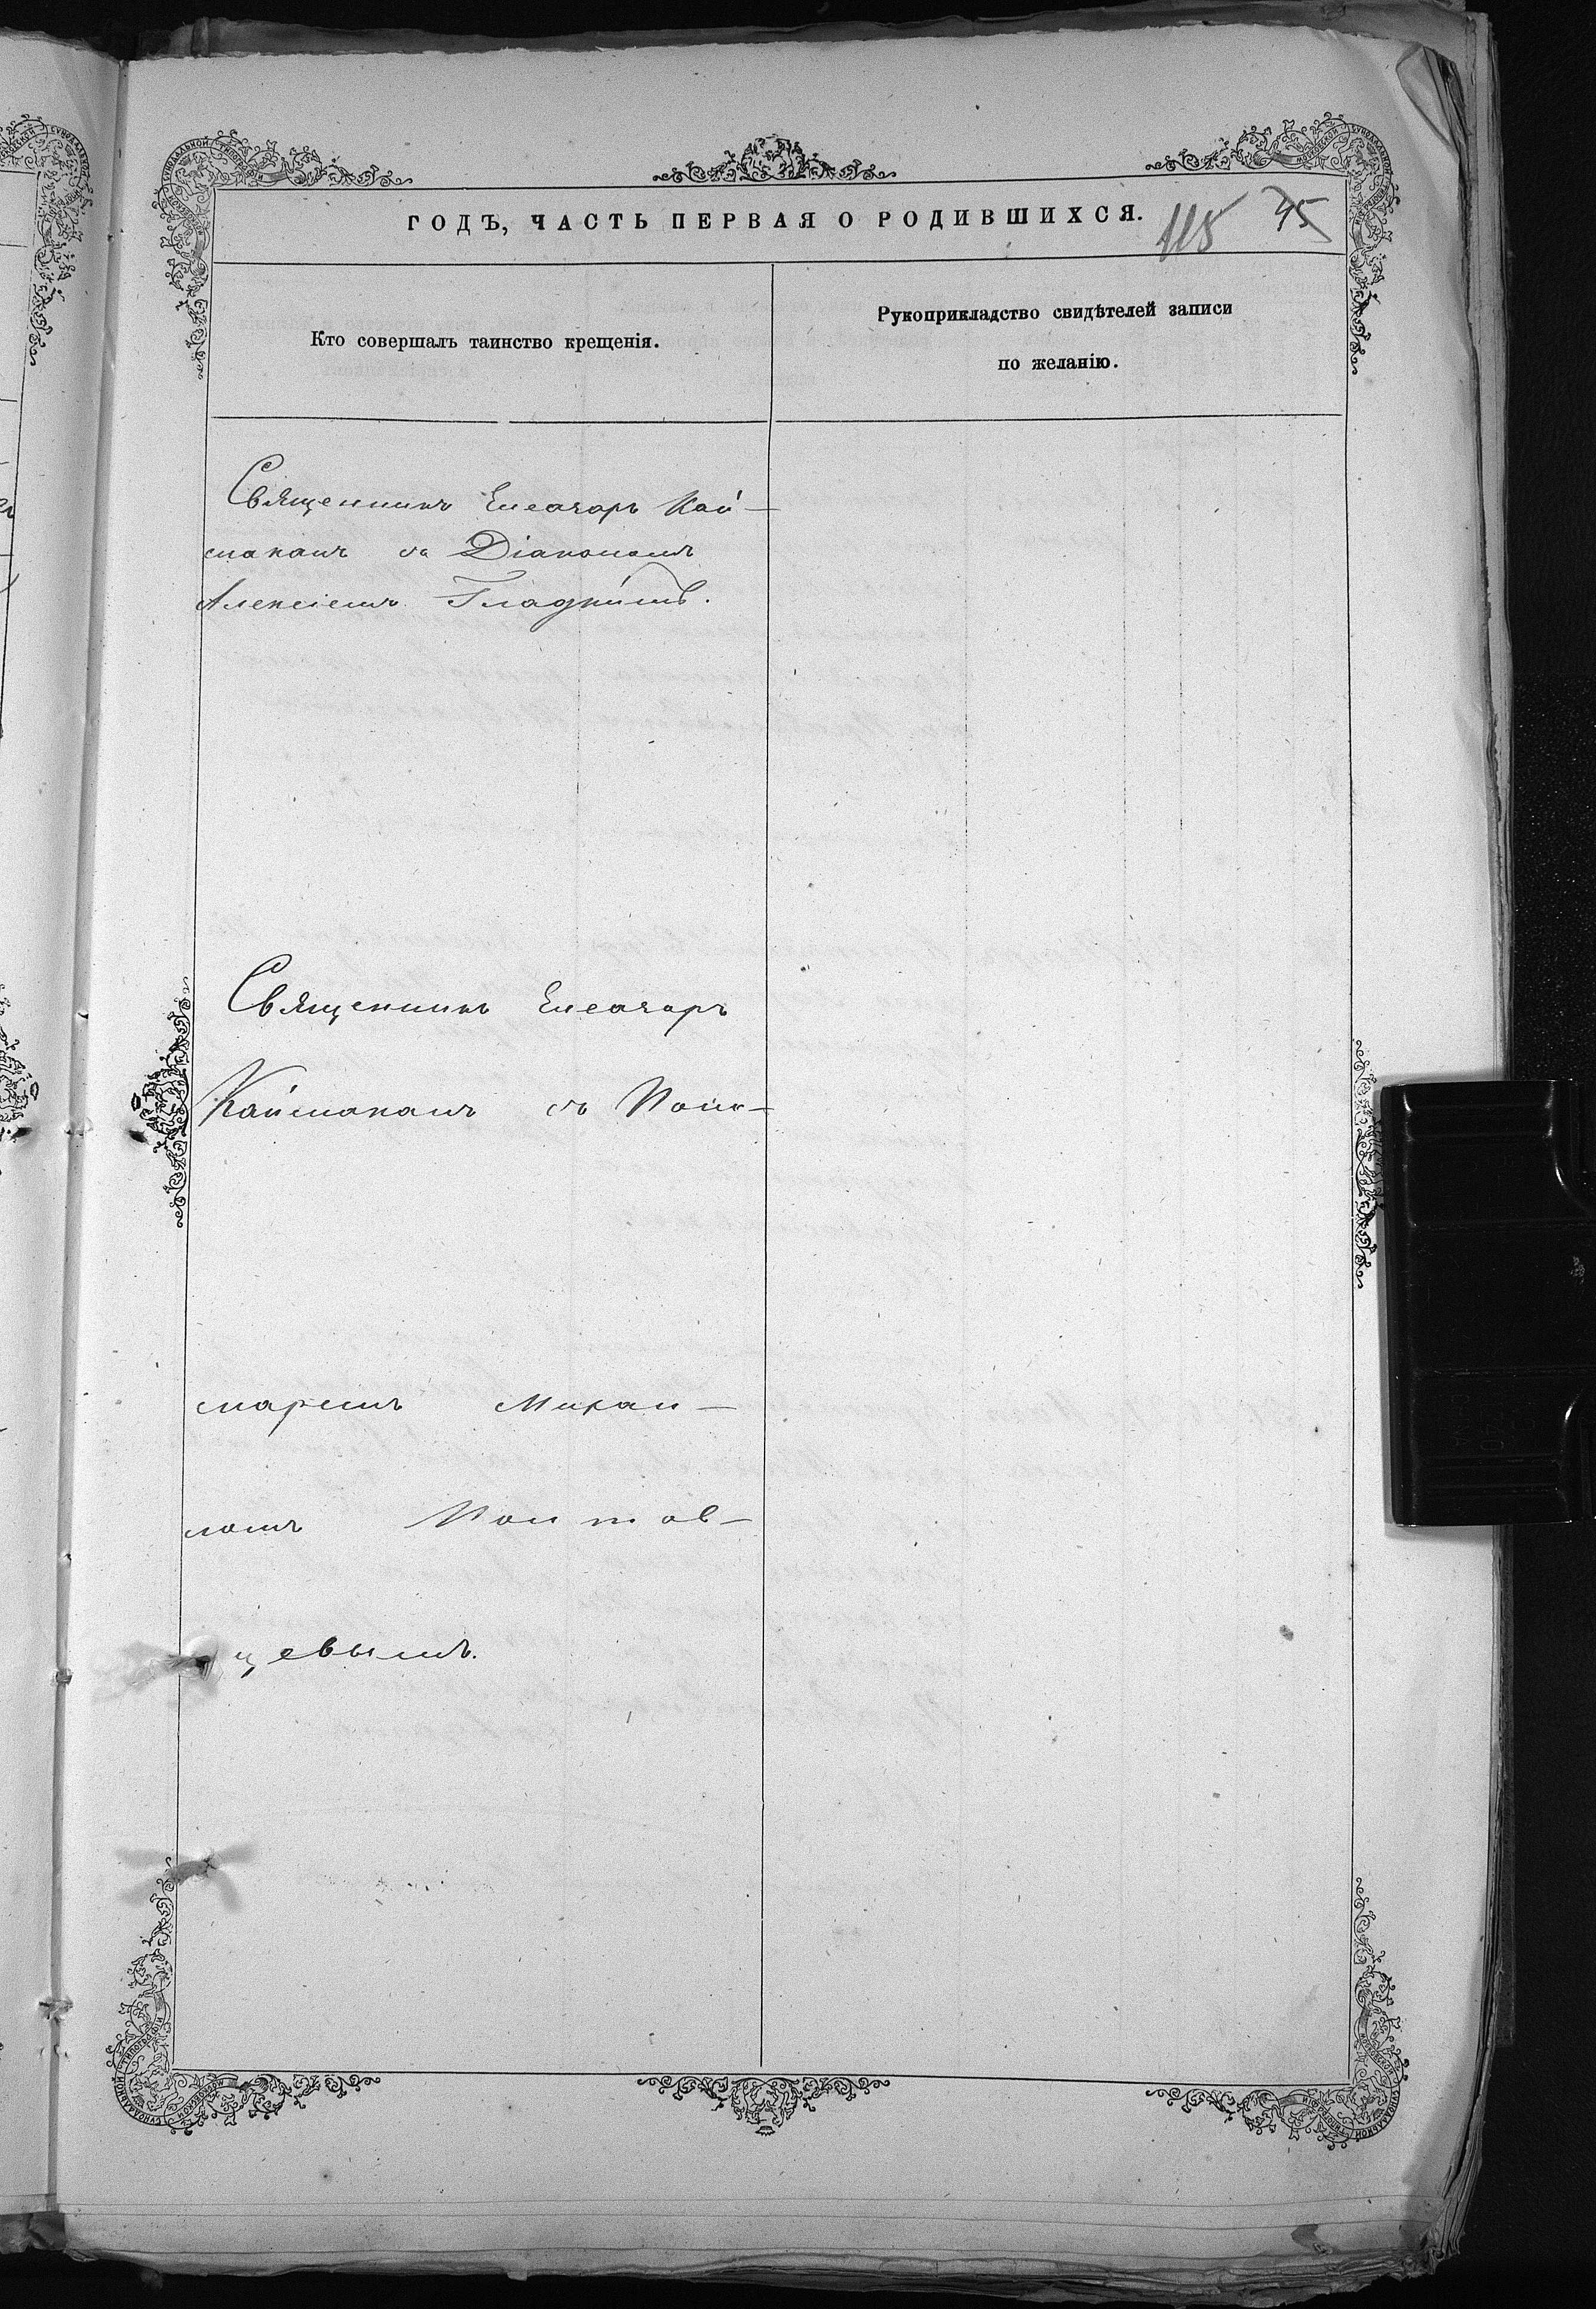 ГОДЪ, ЧАСТЬ ПЕРВАЯ О РОДИВШИХСЯ.
115 45
Кто совершалъ таинство крещенія.
Рукоприкладство свидѣтелей записи
по желанію.
Священникъ Елеазаръ Кай-
маканъ съ Діакономъ
Алексіемъ Гладкимъ.
Священникъ Елеазаръ
Каймаканъ съ Поно-
маремъ Михаи-
ломъ
цевымъ.